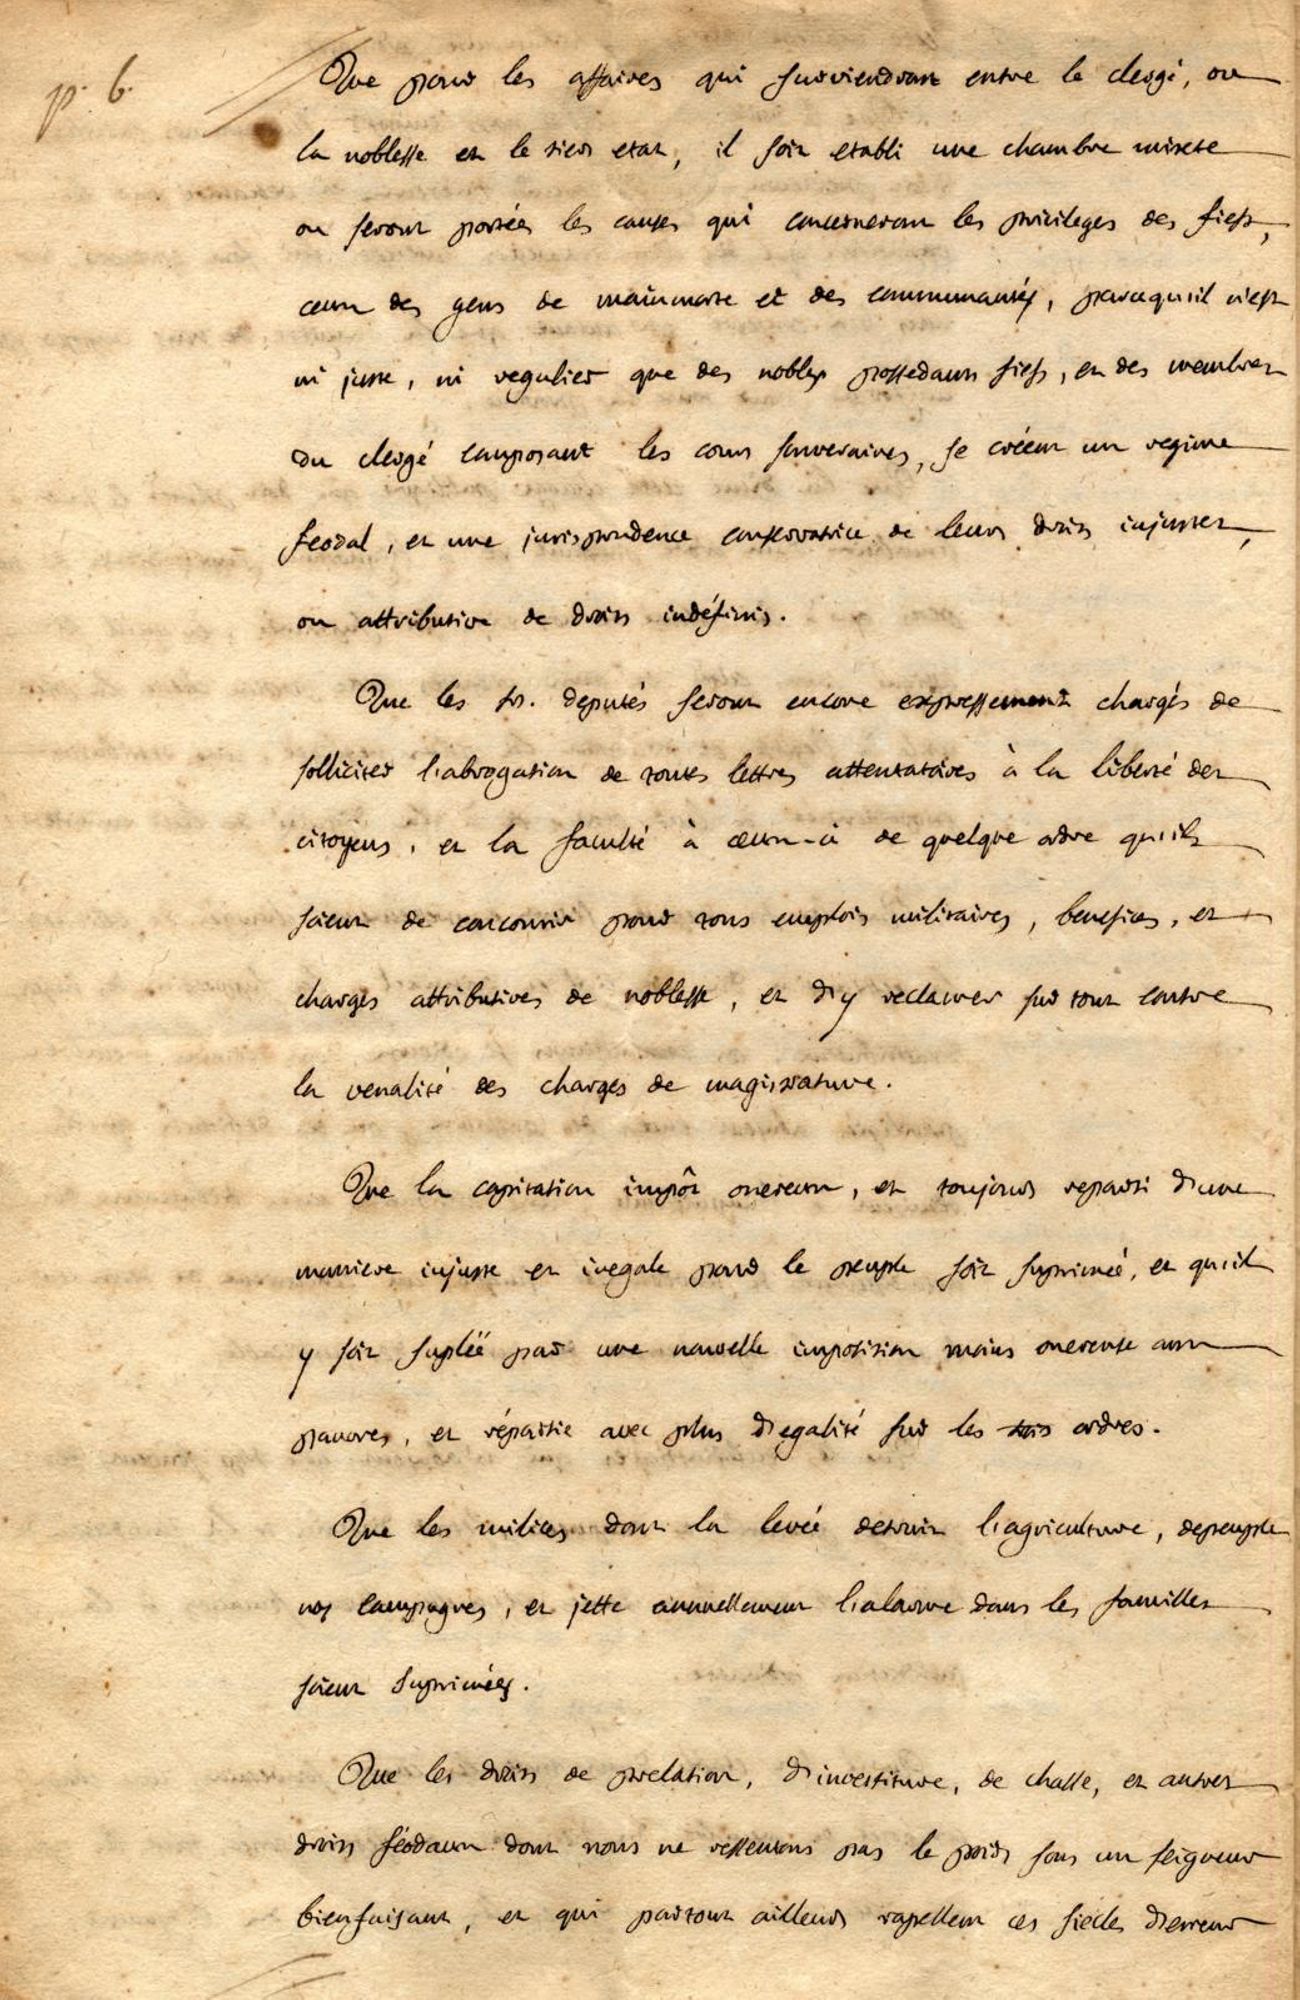 p. 6.
Que pour les affaires qui surviendront entre le clergé, ou
la noblesse et le tiers etat, il soit etabli une chambre mixte
ou seront portées les causes qui concerneront les privileges des fiefs,
ceux des gens de mainmorte et des communautés, parcequ'il n'est
ni juste, ni regulier que des nobles possedants fiefs, et des membres
du clergé composant les cours souveraines, se créent un regime
feodal, et une jurisprudence conservatrice de leurs droits injustes,
ou attributive de droits indéfinis.
Que les srs. deputés seront encore expressement chargés de
solliciter l'abrogation de toutes lettres attentatoires à la liberté des
citoyens, et la faculté à ceux-ci de quelque ordre qu'ils
soient de concourir pour tous emplois militaires, benefices, et
charges attributives de noblesse, et d'y reclamer sur tout contre
la venalité des charges de magistrature.
Que la capitation impôt onereux, et toujours reparti d'une
maniere injuste et inegale pour le peuple soit suprimée, et qu'il
y soit supléé par une nouvelle imposition moins onereuse aux
pauvres, et répartie avec plus d'egalité sur les trois ordres.
Que les milices dont la levée detruit l'agriculture, depeuple
nos campagnes, et jette annuellement l'alarme dans les familles
soient suprimées.
Que les droits de prelation, d'investiture, de chasse, et autres
droits féodaux dont nous ne ressentons pas le poids sous un seigneur
bienfaisant, et qui partout ailleurs rapellent ces siecles d'erreur